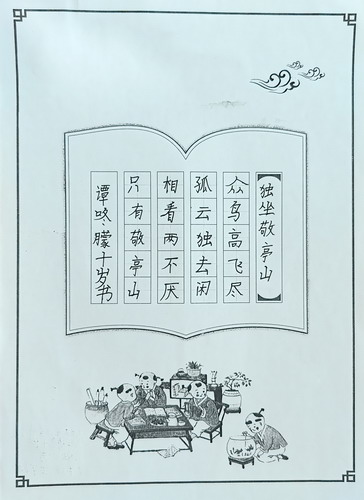 独坐敬亭山
众鸟高飞尽
孤云独去闲
相看两不厌
只有敬亭山
谭咚朦十岁书